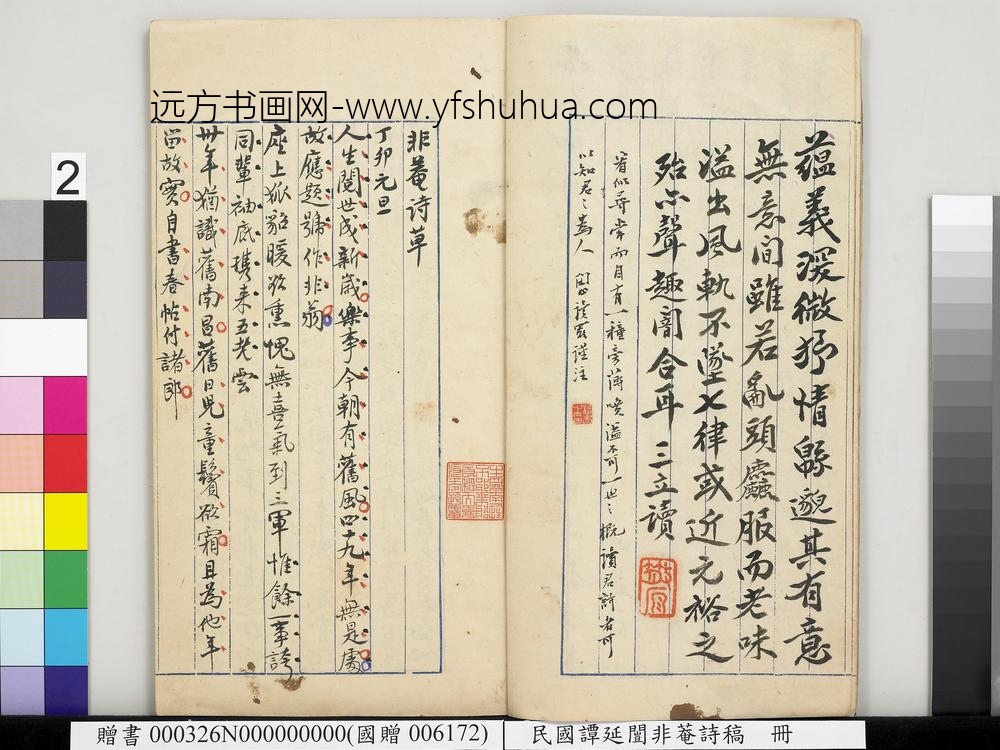 远方书画网-www.yfshuhua.com
2
蘊義深微抒情緜邈其有意
無意間雖若亂頭麤服而老味
溢出風軌不墜七律或近元裕之
殆亦聲趣闇合耳三立讀
省似尋常而自有一種旁薄噴溢不可一世之概讀君詩者可
以知君之為人
謹注
非菴詩草
丁卯元旦
人生閱世成新歲樂事今朝有舊風四十九年無是處
故應題號作非翁
座上狐貂暖欲熏愧無喜氣到三軍惟餘一事誇
同輩袖底携来五老雲
卅年猶識舊南昌舊日兒童鬢欲霜且為他年
留故實自書春帖付諸郎
贈書 000326N000000000(國贈 006172)
民國譚延闓非菴詩稿 冊